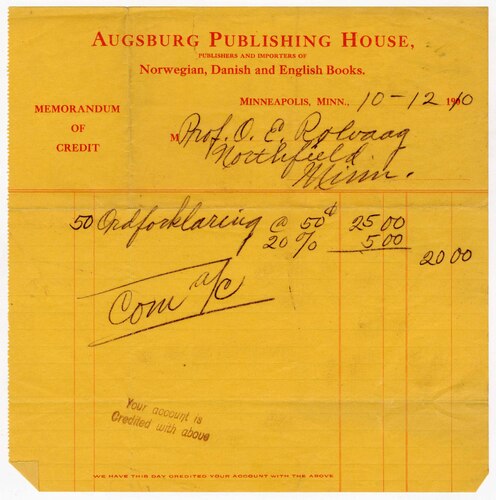 AUGSBURG PUBLISHING HOUSE,
PUBLISHERS AND IMPORTERS OF
Norwegian, Danish and English Books.
MINNEAPOLIS, MINN., 10-12 1910
MEMORANDUM
OF
CREDIT
M Prof. O. E. Rolvaag
Northfield
Minn.
50 Ordforklaring @ 50¢ 25 00
20 % 5 00
20 00
Com a/c
Your account is
Credited with above
WE HAVE THIS DAY CREDITED YOUR ACCOUNT WITH THE ABOVE